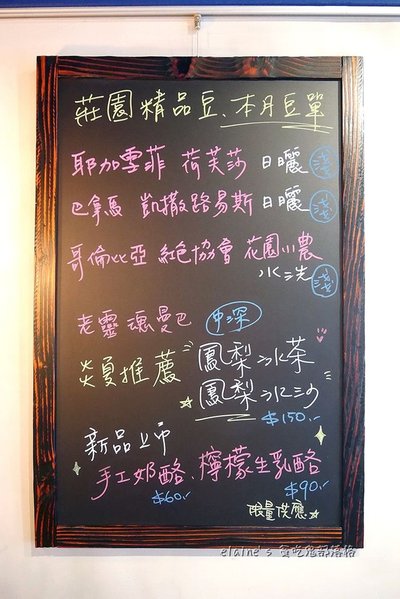 莊園精品豆、本月豆單
耶加雪菲 荷芙莎 日曬 淺
巴拿馬 凱撒路易斯 日曬 淺
哥倫比亞 綠色協會 花園小農
水洗 淺
老靈魂曼巴 中深
炎夏推薦 鳳梨冰茶
鳳梨冰沙
$150.-
新品上市
手工奶酪、檸檬生乳酪
$60.- $90.-
限量供應
elaine's 貪吃鬼部落格